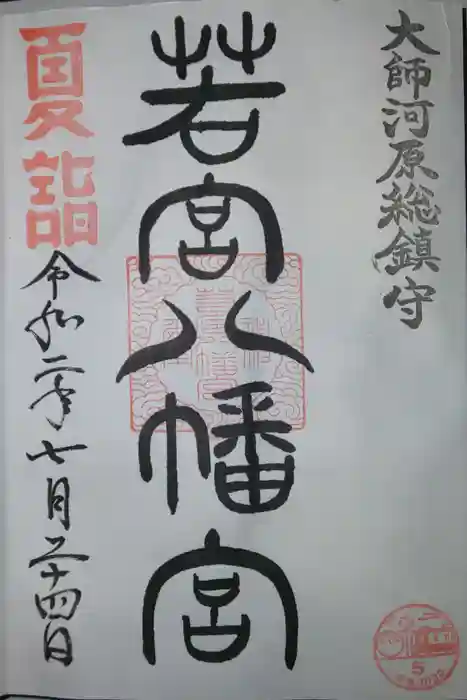 大師河原総鎮守
若宮八幡宮
夏詣
令和二年七月二十四日
5